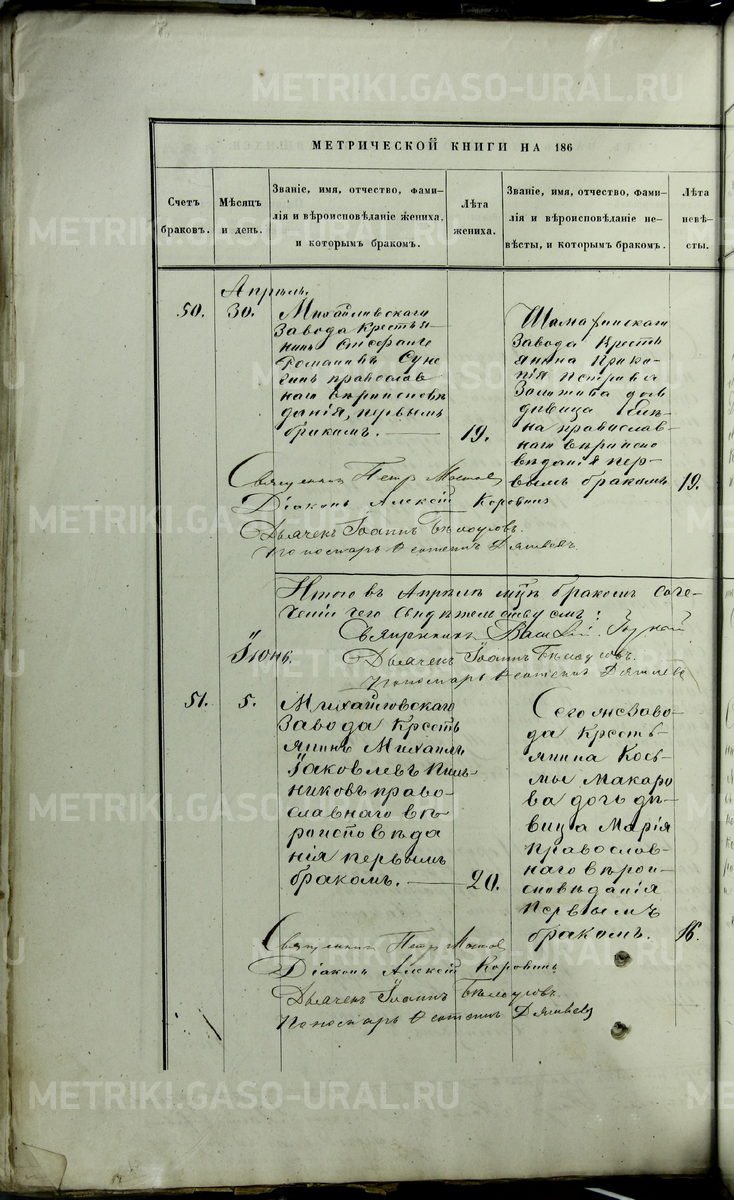 METRIKI.GASO-URAL.RU
МЕТРИЧЕСКОЙ КНИГИ НА 186
Счетъ
браковъ.
Мѣсяцъ
и день.
Званіе, имя, отчество, фами-
лія и вѣроисповѣданіе жениха,
и которымъ бракомъ.
Лѣта
жениха.
Званіе, имя, отчество, фами-
лія и вѣроисповѣданіе не-
вѣсты, и которымъ бракомъ.
Лѣта
невѣ-
сты.
Апрѣль.
50.
30.
Михайловскаго
завода крестья
нинъ
Романовъ
православ
наго вѣроисповѣ
данія, первымъ
бракомъ.
19.
завода кресть
янина Проко-
пія Петрова
дочь
дѣвица Еле-
на православ-
наго вѣроиспо
вѣданія пер-
вымъ бракомъ
19.
Священникъ Петръ
Діаконъ Алексій Коровинъ
Дьячекъ Іоаннъ Бѣлоусовъ.
Пономарь
Итого въ Апрѣлѣ мцѣ бракомъ соче-
свидѣтельствуемъ:
Священникъ
Дьячекъ Іоаннъ Бѣлоусовъ.
Пономарь
Іюнь.
51.
5.
Михайловскаго
завода кресть
янинъ Михаилъ
Іаковлевъ
право-
славнаго вѣ
роисповѣда
нія первымъ
бракомъ.
20.
Сего же заво-
да кресть-
янина Кось-
мы Макаро
ва дочь дѣ-
вица Марія
православ-
наго вѣрои-
сповѣданія
первымъ
бракомъ.
16.
Священникъ Петръ
Діаконъ Алексій Коровинъ
Дьячекъ Іоаннъ Бѣлоусовъ.
Пономарь